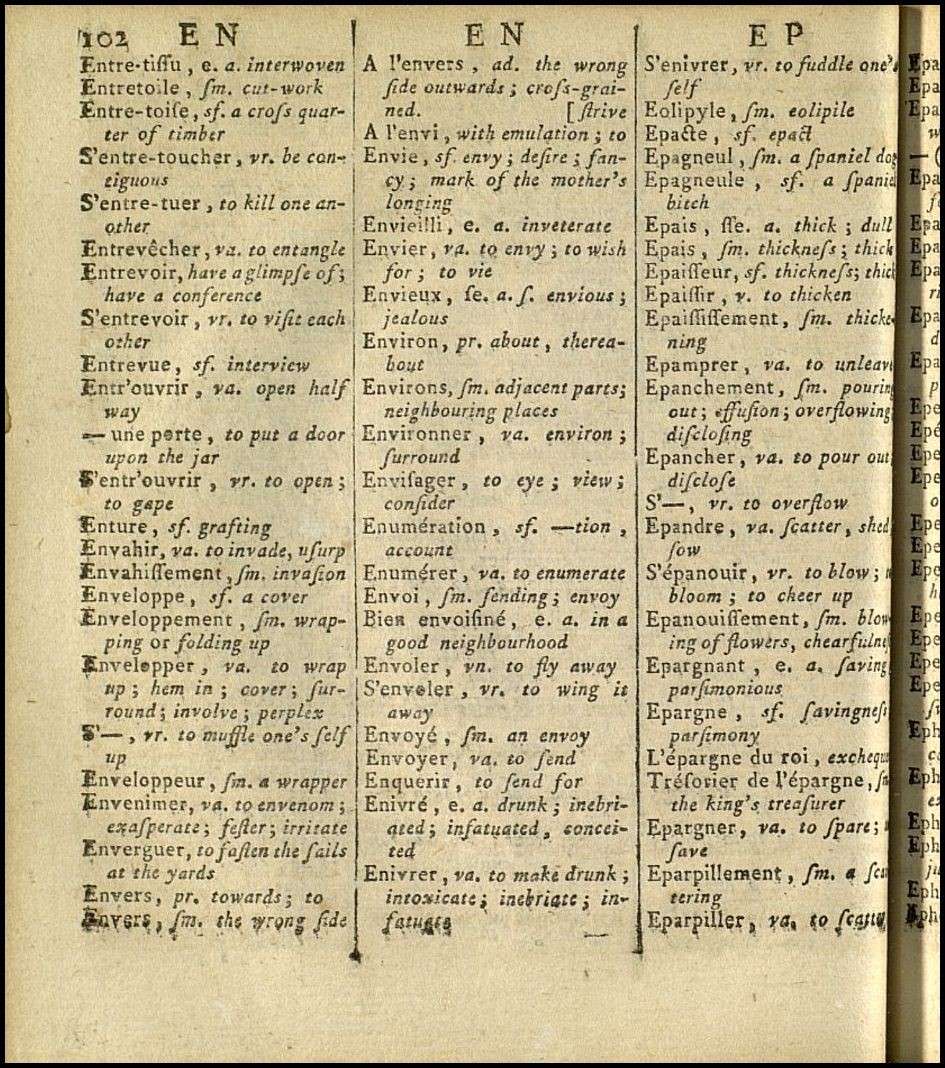 102 E N
Entre-tiſſu, e. a. interwoven
Entretoile, ſm. cut-work
Entre-toiſe, sf. a croſs quar-
ter of timber
S'entre-toucher, vr. be con-
tiguous
S'entre-tuer, to kill one an-
other
Entrevêcher, va. to entangle
Entrevoir, have a glimpſe of;
have a conference
S'entrevoir, vr. to viſit each
other
Entrevue, sf. interview
Entr'ouvrir, va. open half
way
— une porte, to put a door
upon the jar
S'entr'ouvrir, vr. to open;
to gape
Enture, sf. grafting
Envahir, va. to invade, uſurp
Envahiſſement, ſm. invaſion
Enveloppe, sf. a cover
Enveloppement, ſm. wrap-
ping or folding up
Envelopper, va. to wrap
up; hem in; cover; ſur-
round; involve; perplex
S'—, vr. to muffle one's ſelf
up
Enveloppeur, ſm. a wrapper
Envenimer, va. to envenom;
exaſperate; feſter; irritate
Enverguer, to faſten the ſails
at the yards
Envers, pr. towards; to
Envers, ſm. the wrong ſide
E N
A l'envers, ad. the wrong
ſide outwards; croſs-grai-
ned. [ſtrive
A l'envi, with emulation; to
Envie, sf. envy; deſire; fan-
cy; mark of the mother's
longing
Envieilli, e. a. inveterate
Envier, va. to envy; to wish
for; to vie
Envieux, ſe. a. ſ. envious;
jealous
Environ, pr. about, therea-
bout
Environs, ſm. adjacent parts;
neighbouring places
Environner, va. environ;
ſurround
Enviſager, to eye; view;
conſider
Enumération, sf. —tion,
account
Enumérer, va. to enumerate
Envoi, ſm. ſending; envoy
Bien envoiſiné, e. a. in a
good neighbourhood
Envoler, vn. to fly away
S'envoler, vr. to wing it
away
Envoyé, ſm. an envoy
Envoyer, va. to ſend
Enquerir, to ſend for
Enivré, e. a. drunk; inebri-
ated; infatuated, concei-
ted
Enivrer, va. to make drunk;
intoxicate; inebriate; in-
fatuate
E P
S'enivrer, vr. to fuddle one's
ſelf
Eolipyle, ſm. eolipile
Epacte, sf. epact
Epagneul, ſm. a ſpaniel dog
Epagneule, sf. a ſpaniel
bitch
Epais, ſſe. a. thick; dull
Epais, ſm. thickneſs; thick
Epaiſſeur, sf. thickneſs; thick
Epaiſſir, v. to thicken
Epaiſſiſſement, ſm. thicke-
ning
Epamprer, va. to unleave
Epanchement, ſm. pouring
out; effuſion; overflowing
diſcloſing
Epancher, va. to pour out;
diſcloſe
S'—, vr. to overflow
Epandre, va. ſcatter, shed
ſow
S'épanouir, vr. to blow;
bloom; to cheer up
Epanouiſſement, ſm. blow
ing of flowers, chearfulneſ
Epargnant, e. a. ſaving
parſimonious
Epargne, sf. ſavingneſs
parſimony
L'épargne du roi, exchequ
Tréſorier de l'épargne, ſm
the king's treaſurer
Epargner, va. to ſpare;
ſave
Eparpillement, ſm. a ſcat
tering
Eparpiller, va. to ſcatte